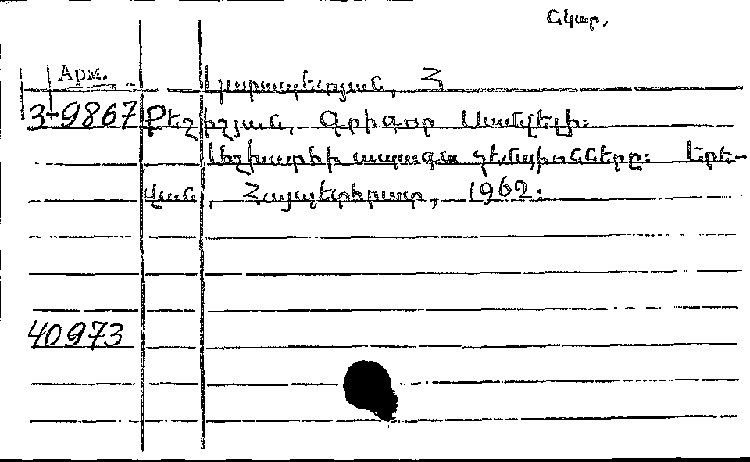 Նկար.
Арм.
Կարապետյան, Հ
3-9867 Քեշիշյան, Գրիգոր Սամվելի:
աշխատեփի ապագա չեմպիոնները: Երե-
վան, Հայպետհրատ, 1962:
40973